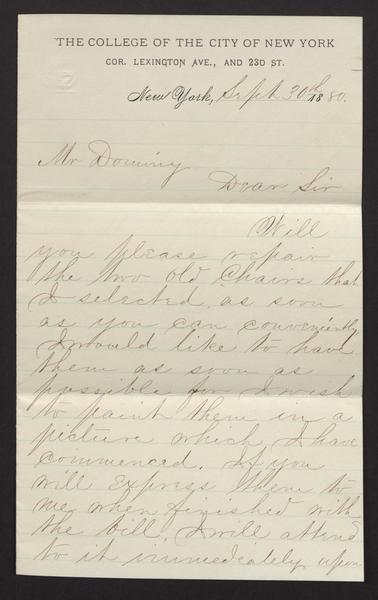 THE COLLEGE OF THE CITY OF NEW YORK
COR. LEXINGTON AVE., AND 23D ST.
New York, Sept 30th 1880.
Mr Dominy
Dear Sir
Will
you please repair
the two old Chairs that
I selected, as soon
as you can conveniently
I would like to have
them as soon as
possible for I wish
to paint them in a
picture which I have
commenced. If you
will Express them to
me when finished with
the bill, I will attend
to it immediately upon